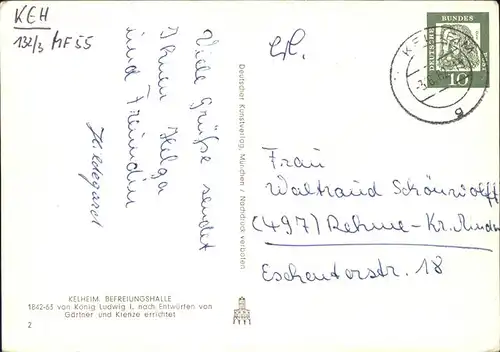 KEH
132/3 MF55
Viele Grüße sendet
Ihnen Helga
und Freundin
Hildegard
Deutscher Kunstverlag, München / Nachdruck verboten
DEUTSCHE
BUNDES
10
KELHEIM
g
Frau
Waltraud Schönwolff
(497) Rehme-Kr. Minden
Eschentorstr. 18
KELHEIM BEFREIUNGSHALLE
1842-63 von König Ludwig I. nach Entwürfen von
Gärtner und Klenze errichtet
2